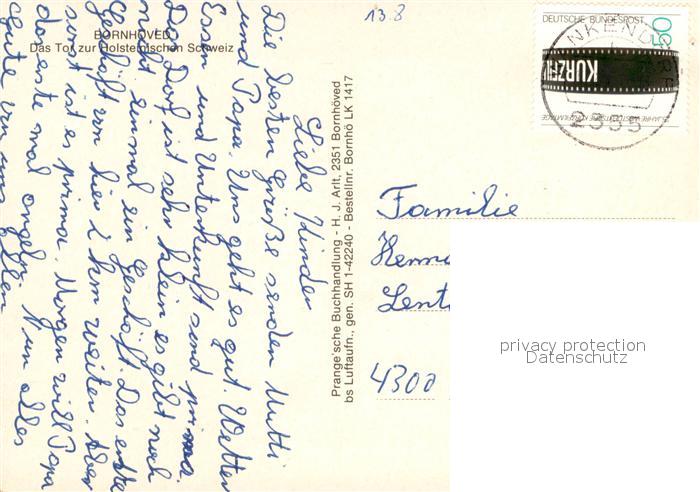 BORNHÖVED
Das Tor zur Holsteinischen Schweiz
13.8
Liebe Kinder
Die besten Grüße senden Mutti
und Papa. Uns geht es gut. Wetter
Essen und Unterkunft sind prima.
Das Dorf ist sehr klein es gibt noch
nicht einmal ein Geschäft. Das erste
Geschäft von hier 2 km weiter. Aber
sonst ist es prima. Morgen will Papa
das erste mal angeln. Nun alles
gute von uns allen
Prange'sche Buchhandlung - H. J. Arlt, 2351 Bornhöved
bs Luftaufn., gen. SH 1-42240 - Bestellnr. Bornhö LK 1417
DEUTSCHE BUNDESPOST
50
KURZFI
WESTDEUTSCHE KURZFILMTAGE
NKENDORF
2355
Familie
Herma
Lent
4300
privacy protection
Datenschutz